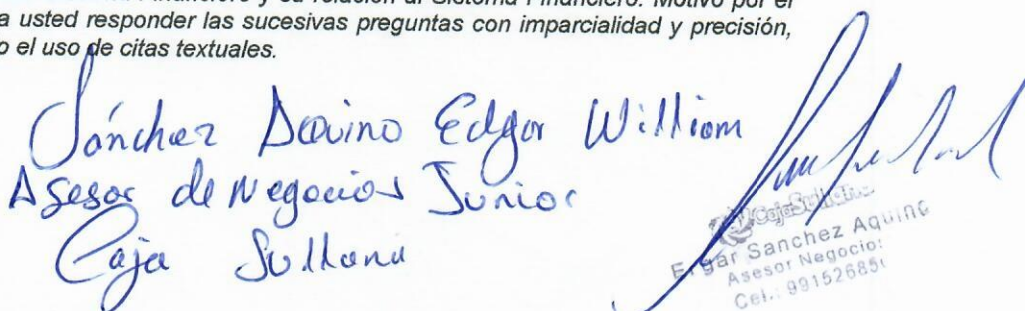 Financiero y su relación al Sistema Financiero. Motivo por el
a usted responder las sucesivas preguntas con imparcialidad y precisión,
o el uso de citas textuales.
Sánchez Aquino Edgar William
Asesor de Negocios Junior
Caja Sullana
CajaSullana
Edgar Sanchez Aquino
Asesor Negocio
Cel.: 99152685